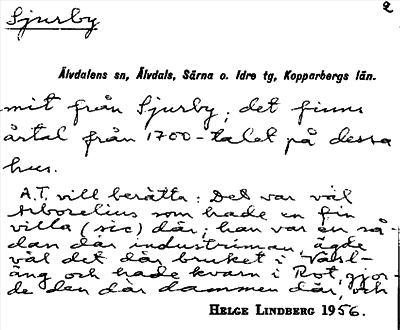 Sjurby 2
Älvdalens sn, Älvdals, Särna o. Idre tg, Kopparbergs län.
mit från Sjurby; det finns
årtal från 1700-talet på dessa
hus.
A.T. vill berätta: Det var väl
Arborelius som hade en fin
villa (sic) där; han var en så-
dan där industriman, ägde
väl det där bruket i Våsl-
äng och hade kvarn i Rot, gjor-
de den där dammen där, och
HELGE LINDBERG 1956.